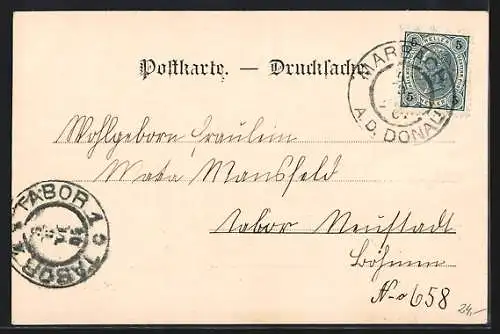 Postkarte. — Drucksache.
5 HELLER 5
MARBACH
A. D. DONAU
5 5
Wohlgeborn Fräulein
Mansfeld
Tabor Neustadt
Böhmen
No 658
TABOR 1
TABOR
24,-